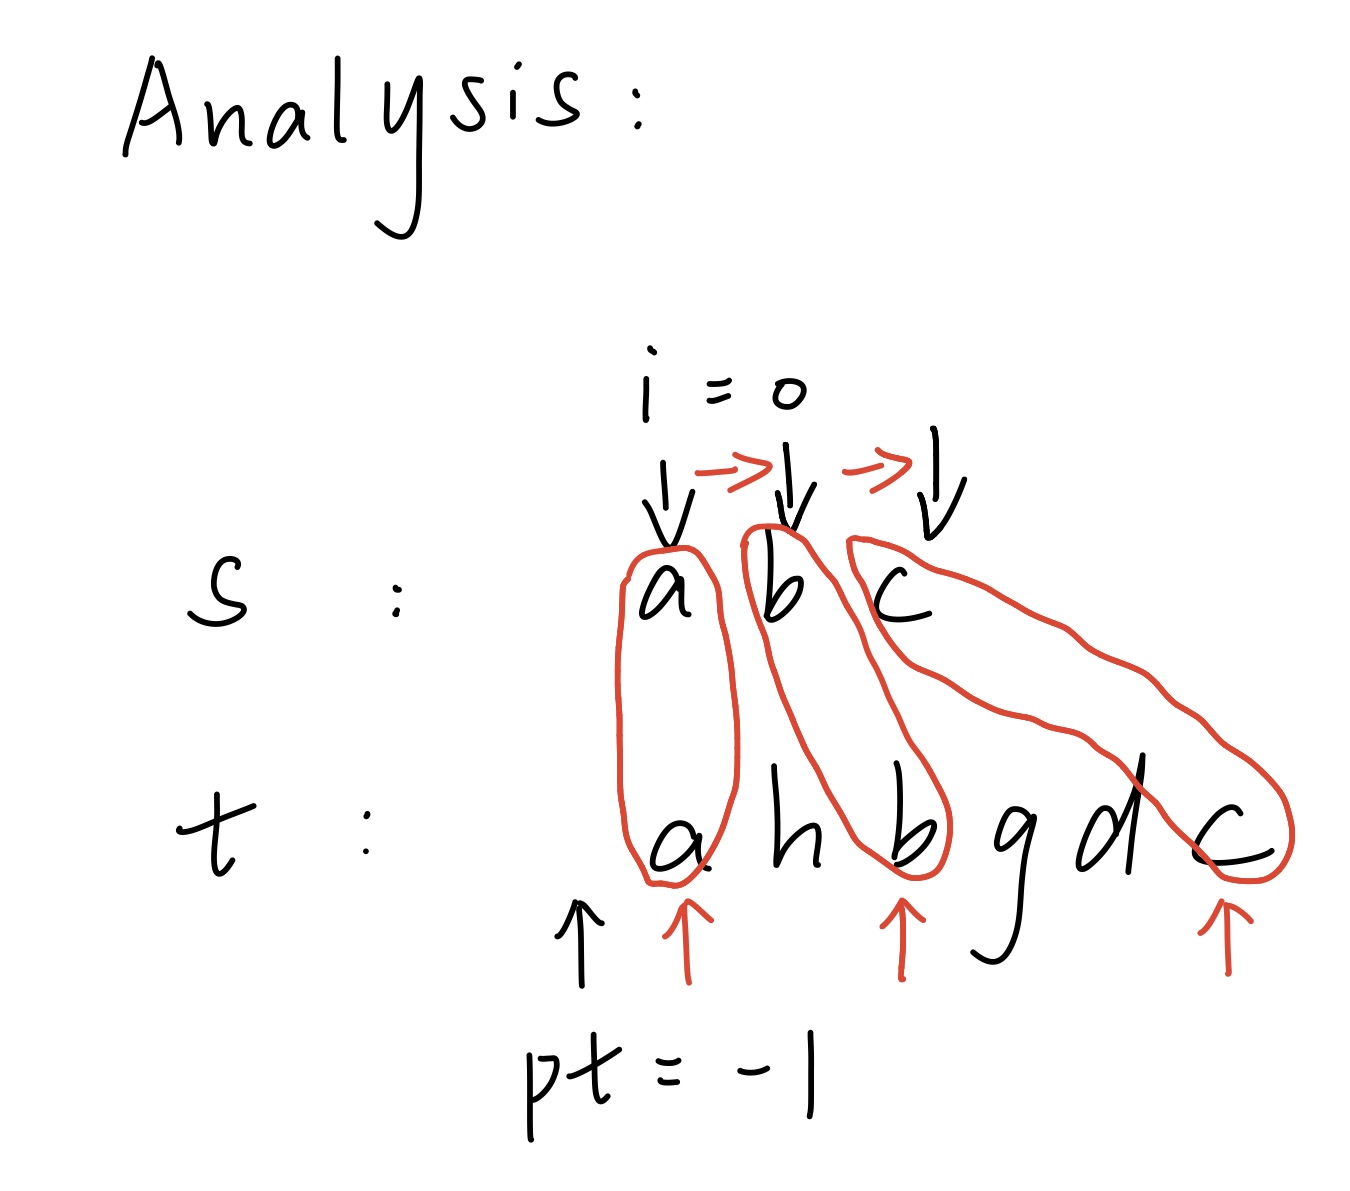 Analysis:
i = 0
s : a b c
t : a h b g d c
pt = -1